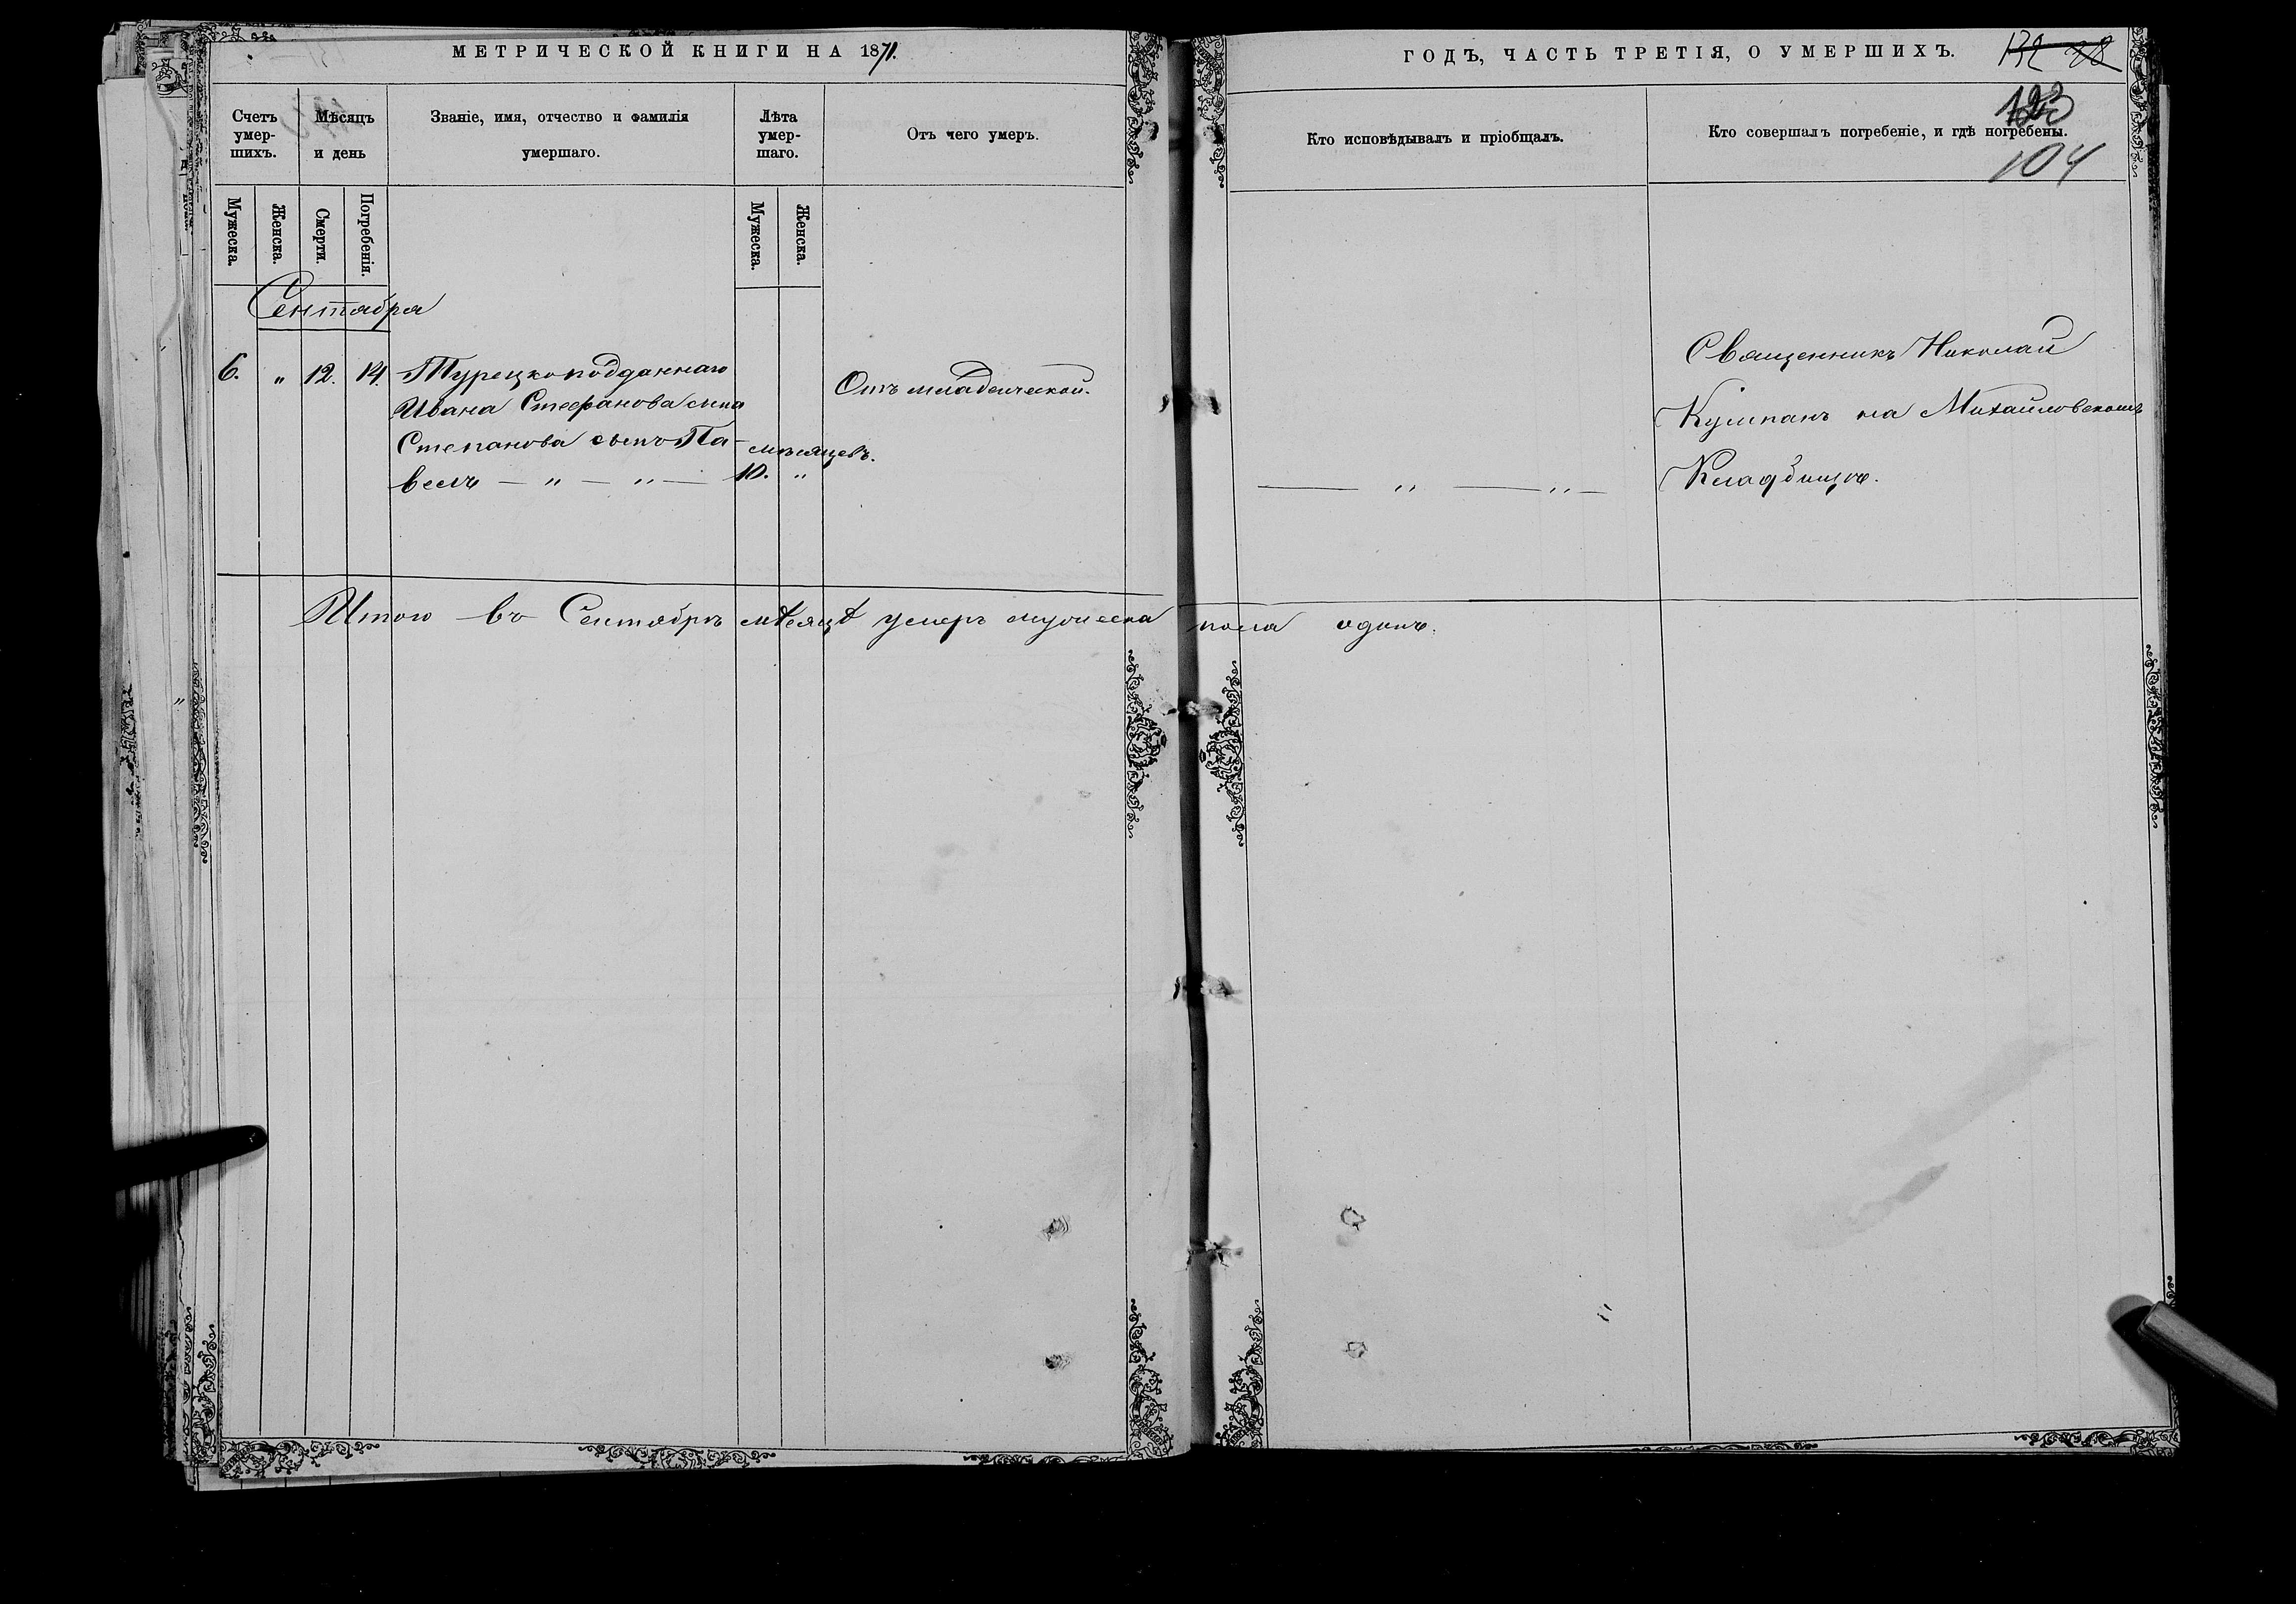 МЕТРИЧЕСКОЙ КНИГИ НА 1871.
ГОДЪ, ЧАСТЬ ТРЕТІЯ, О УМЕРШИХЪ.
132 28
123
104
Счетъ умер-шихъ.
Мѣсяцъ и день
Званіе, имя, отчество и фамилія
умершаго.
Лѣта умер-шаго.
Отъ чего умеръ.
Кто исповѣдывалъ и пріобщалъ.
Кто совершалъ погребеніе, и гдѣ погребены.
Мужеска.
Женска.
Смерти.
Погребенія.
Мужеска.
Женска.
Сентября
6. " 12. 14. Турецкоподданнаго
Ивана Стефанова сына
Степанова сынъ Па-
велъ — " — " —
мѣсяцевъ.
10. "
Отъ младенческой.
— " — " —
Священникъ Николай
Кумпанъ на Михайловскомъ
Кладбищѣ.
Итого въ Сентябрѣ мѣсяцѣ умеръ мужеска пола одинъ.